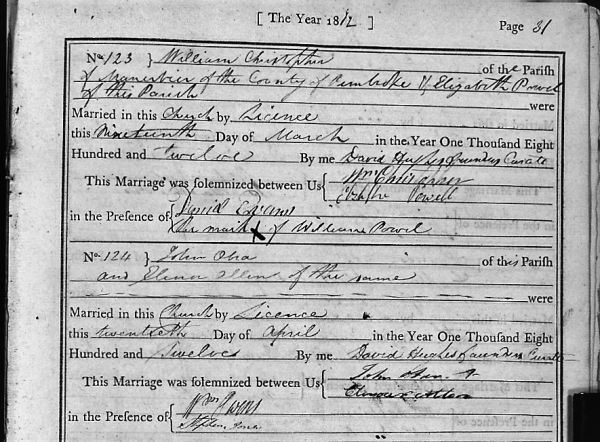 [ The Year 1812 ]
Page 31
No. 123 } William Christopher of the Parish
of Manorbier of the County of Pembroke & Elizabeth Powel
of this Parish were
Married in this Church by Licence
this Nineteenth Day of March in the Year One Thousand Eight
Hundred and twelve By me David Hughes Saunders Curate
This Marriage was solemnized between Us { Wm
Powell
in the Presence of { David Evans
mark X of William Powel
No. 124 } John of this Parish
and Elinor of the same
were
Married in this Church by Licence
this twentieth Day of April in the Year One Thousand Eight
Hundred and Twelves By me David Hughes Saunders Curate
This Marriage was solemnized between Us { John
in the Presence of {